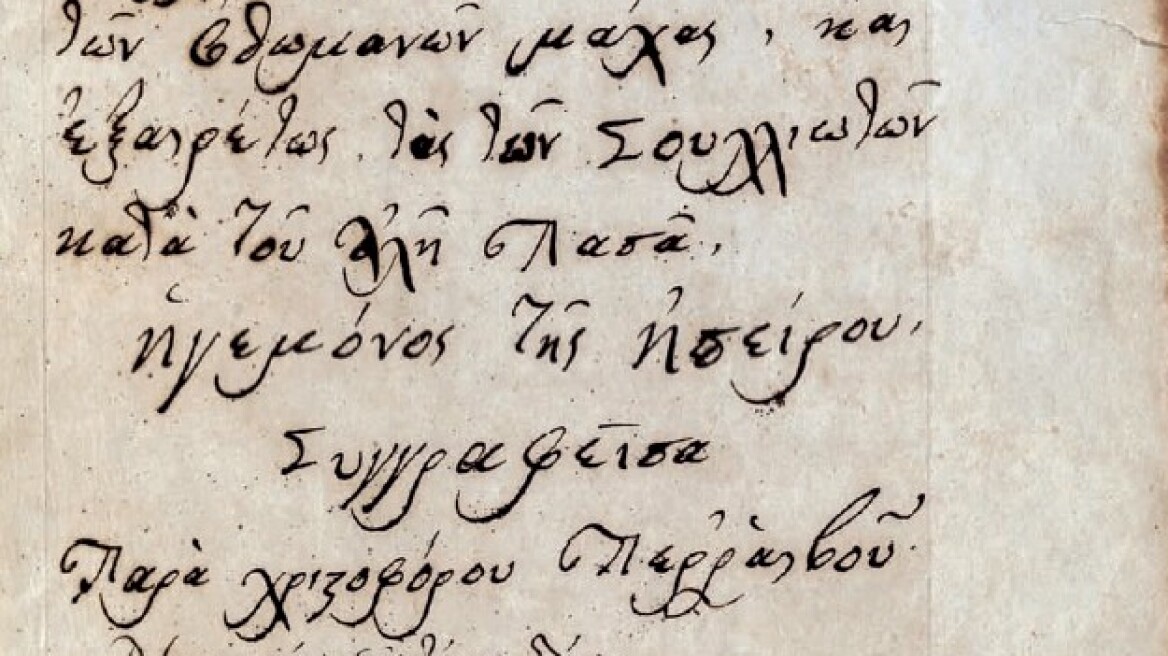 τῶν Ὀθωμανῶν μάχας, καὶ
ἐξαιρέτως τὰς τῶν Σουλλιωτῶν
κατὰ τοῦ Ἀλῆ Πασᾶ,
ἡγεμόνος τῆς ἠπείρου,
Συγγραφεῖσα
Παρὰ χριστοφόρου Περῤαιβοῦ